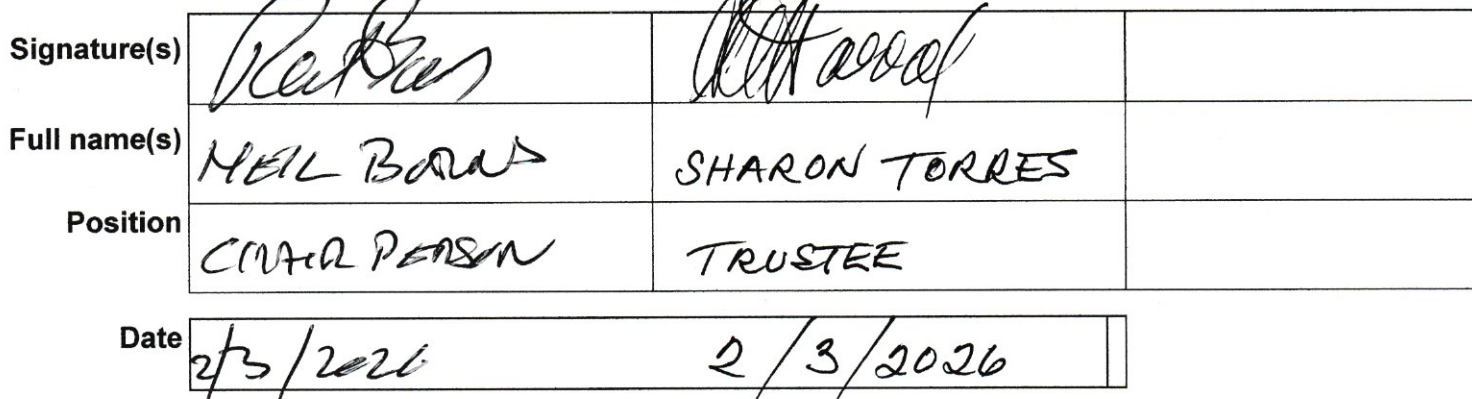 Signature(s)
Full name(s) NEIL BURNS SHARON TORRES
Position CHAIR PERSON TRUSTEE
Date 2/3/2026 2/3/2026